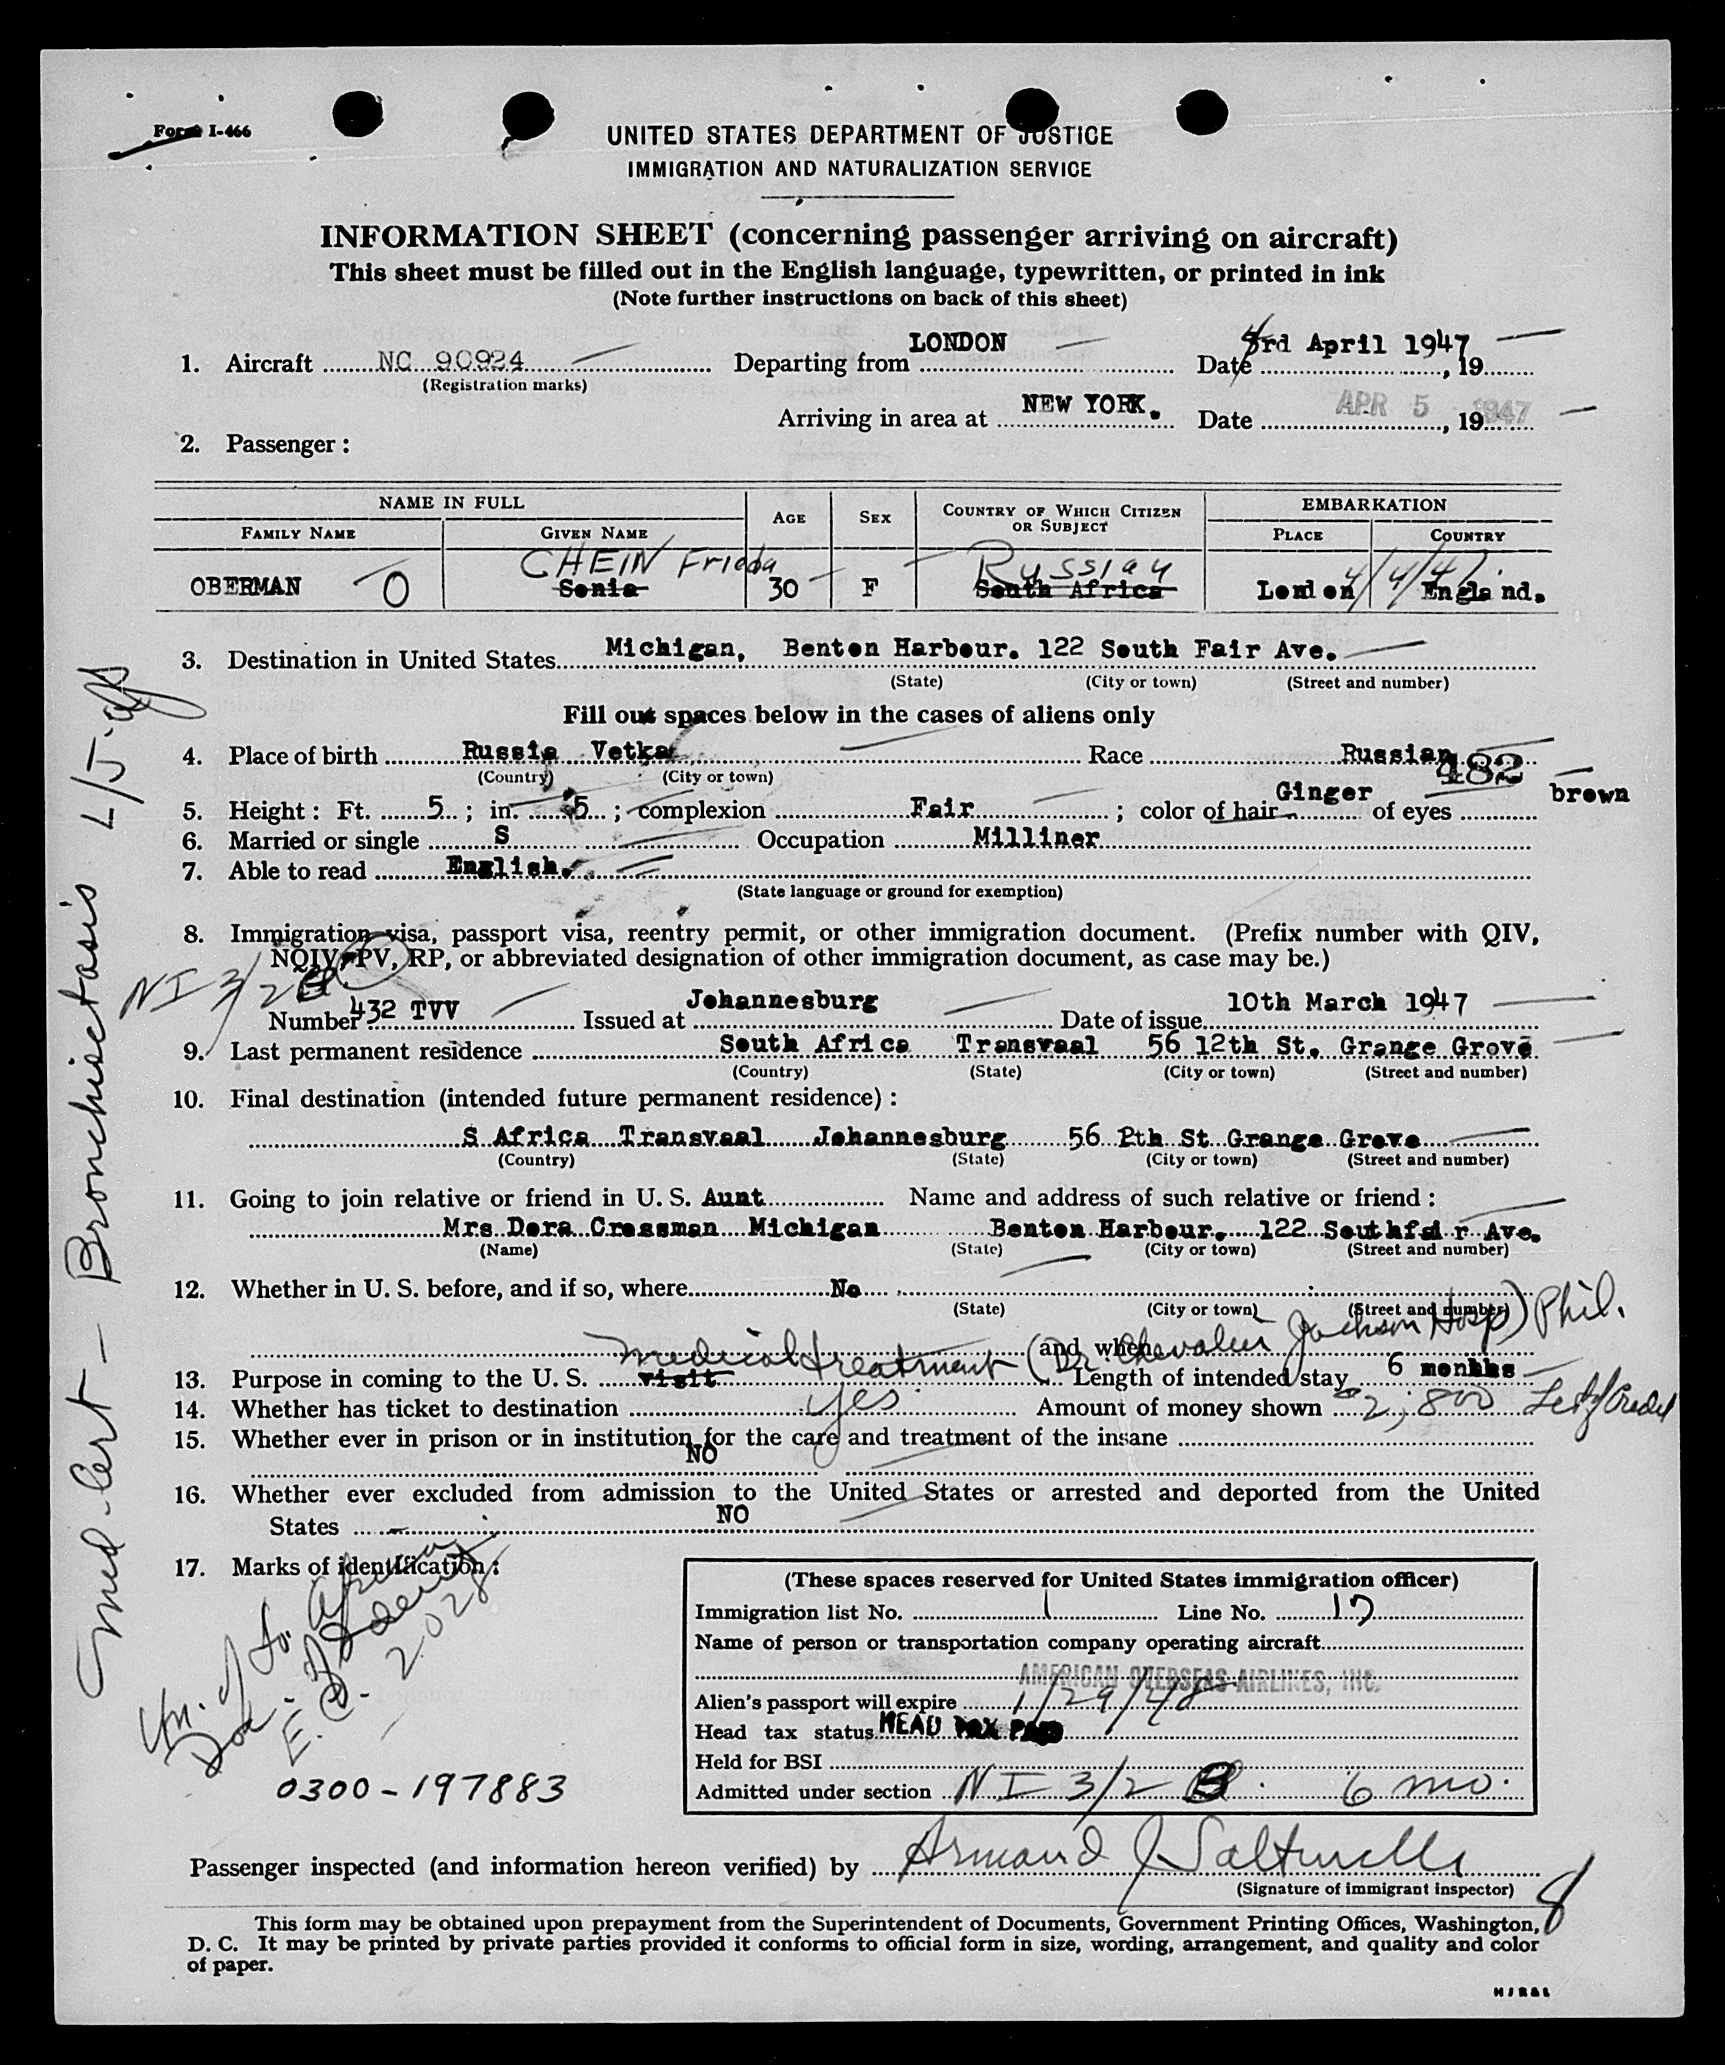 Form I-466
UNITED STATES DEPARTMENT OF JUSTICE
IMMIGRATION AND NATURALIZATION SERVICE
INFORMATION SHEET (concerning passenger arriving on aircraft)
This sheet must be filled out in the English language, typewritten, or printed in ink
(Note further instructions on back of this sheet)
1. Aircraft NC 90924 Departing from LONDON Date 3rd April 1947, 19
(Registration marks)
Arriving in area at NEW YORK. Date APR 5 1947, 19
2. Passenger:
NAME IN FULL AGE SEX COUNTRY OF WHICH CITIZEN OR SUBJECT EMBARKATION
FAMILY NAME GIVEN NAME PLACE COUNTRY
CHEIN Frieda Russian 4/4/47
OBERMAN O Sonia 30 F South Africa London England.
3. Destination in United States Michigan, Benton Harbour. 122 South Fair Ave.
(State) (City or town) (Street and number)
Fill out spaces below in the cases of aliens only
4. Place of birth Russia Vetka Race Russian
(Country) (City or town) 482
5. Height: Ft. 5; in. 5; complexion Fair; color of hair Ginger of eyes brown
6. Married or single S Occupation Milliner
7. Able to read English.
(State language or ground for exemption)
8. Immigration visa, passport visa, reentry permit, or other immigration document. (Prefix number with QIV,
NQIV, PV, RP, or abbreviated designation of other immigration document, as case may be.)
NI 3/2 B
Number 432 TVV Issued at Johannesburg Date of issue 10th March 1947
9. Last permanent residence South Africa Transvaal 56 12th St. Grange Grove
(Country) (State) (City or town) (Street and number)
10. Final destination (intended future permanent residence):
S Africa Transvaal Johannesburg 56 2th St Grange Grove
(Country) (State) (City or town) (Street and number)
11. Going to join relative or friend in U. S. Aunt Name and address of such relative or friend:
Mrs Dora Crossman Michigan Benton Harbour. 122 Southfair Ave.
(Name) (State) (City or town) (Street and number)
12. Whether in U. S. before, and if so, where No
(State) (City or town) (Street and number)
and when
Medical treatment (Dr. Chevalier Jackson Hosp) Phil.
13. Purpose in coming to the U. S. visit Length of intended stay 6 months
14. Whether has ticket to destination yes Amount of money shown 2,800 Let/Credit
15. Whether ever in prison or in institution for the care and treatment of the insane
NO
16. Whether ever excluded from admission to the United States or arrested and deported from the United
States NO
17. Marks of identification:
Un. of So. Africa
E.
0300-197883
(These spaces reserved for United States immigration officer)
Immigration list No. 1 Line No. 17
Name of person or transportation company operating aircraft
AMERICAN OVERSEAS AIRLINES, INC.
Alien's passport will expire 1/29/48
Head tax status HEAD TAX PAID
Held for BSI
Admitted under section NI 3/2 B. 6 mo.
Passenger inspected (and information hereon verified) by Armand J
(Signature of immigrant inspector)
8
This form may be obtained upon prepayment from the Superintendent of Documents, Government Printing Offices, Washington,
D. C. It may be printed by private parties provided it conforms to official form in size, wording, arrangement, and quality and color
of paper.
Med. Cert - Bronchiectasis 4/5